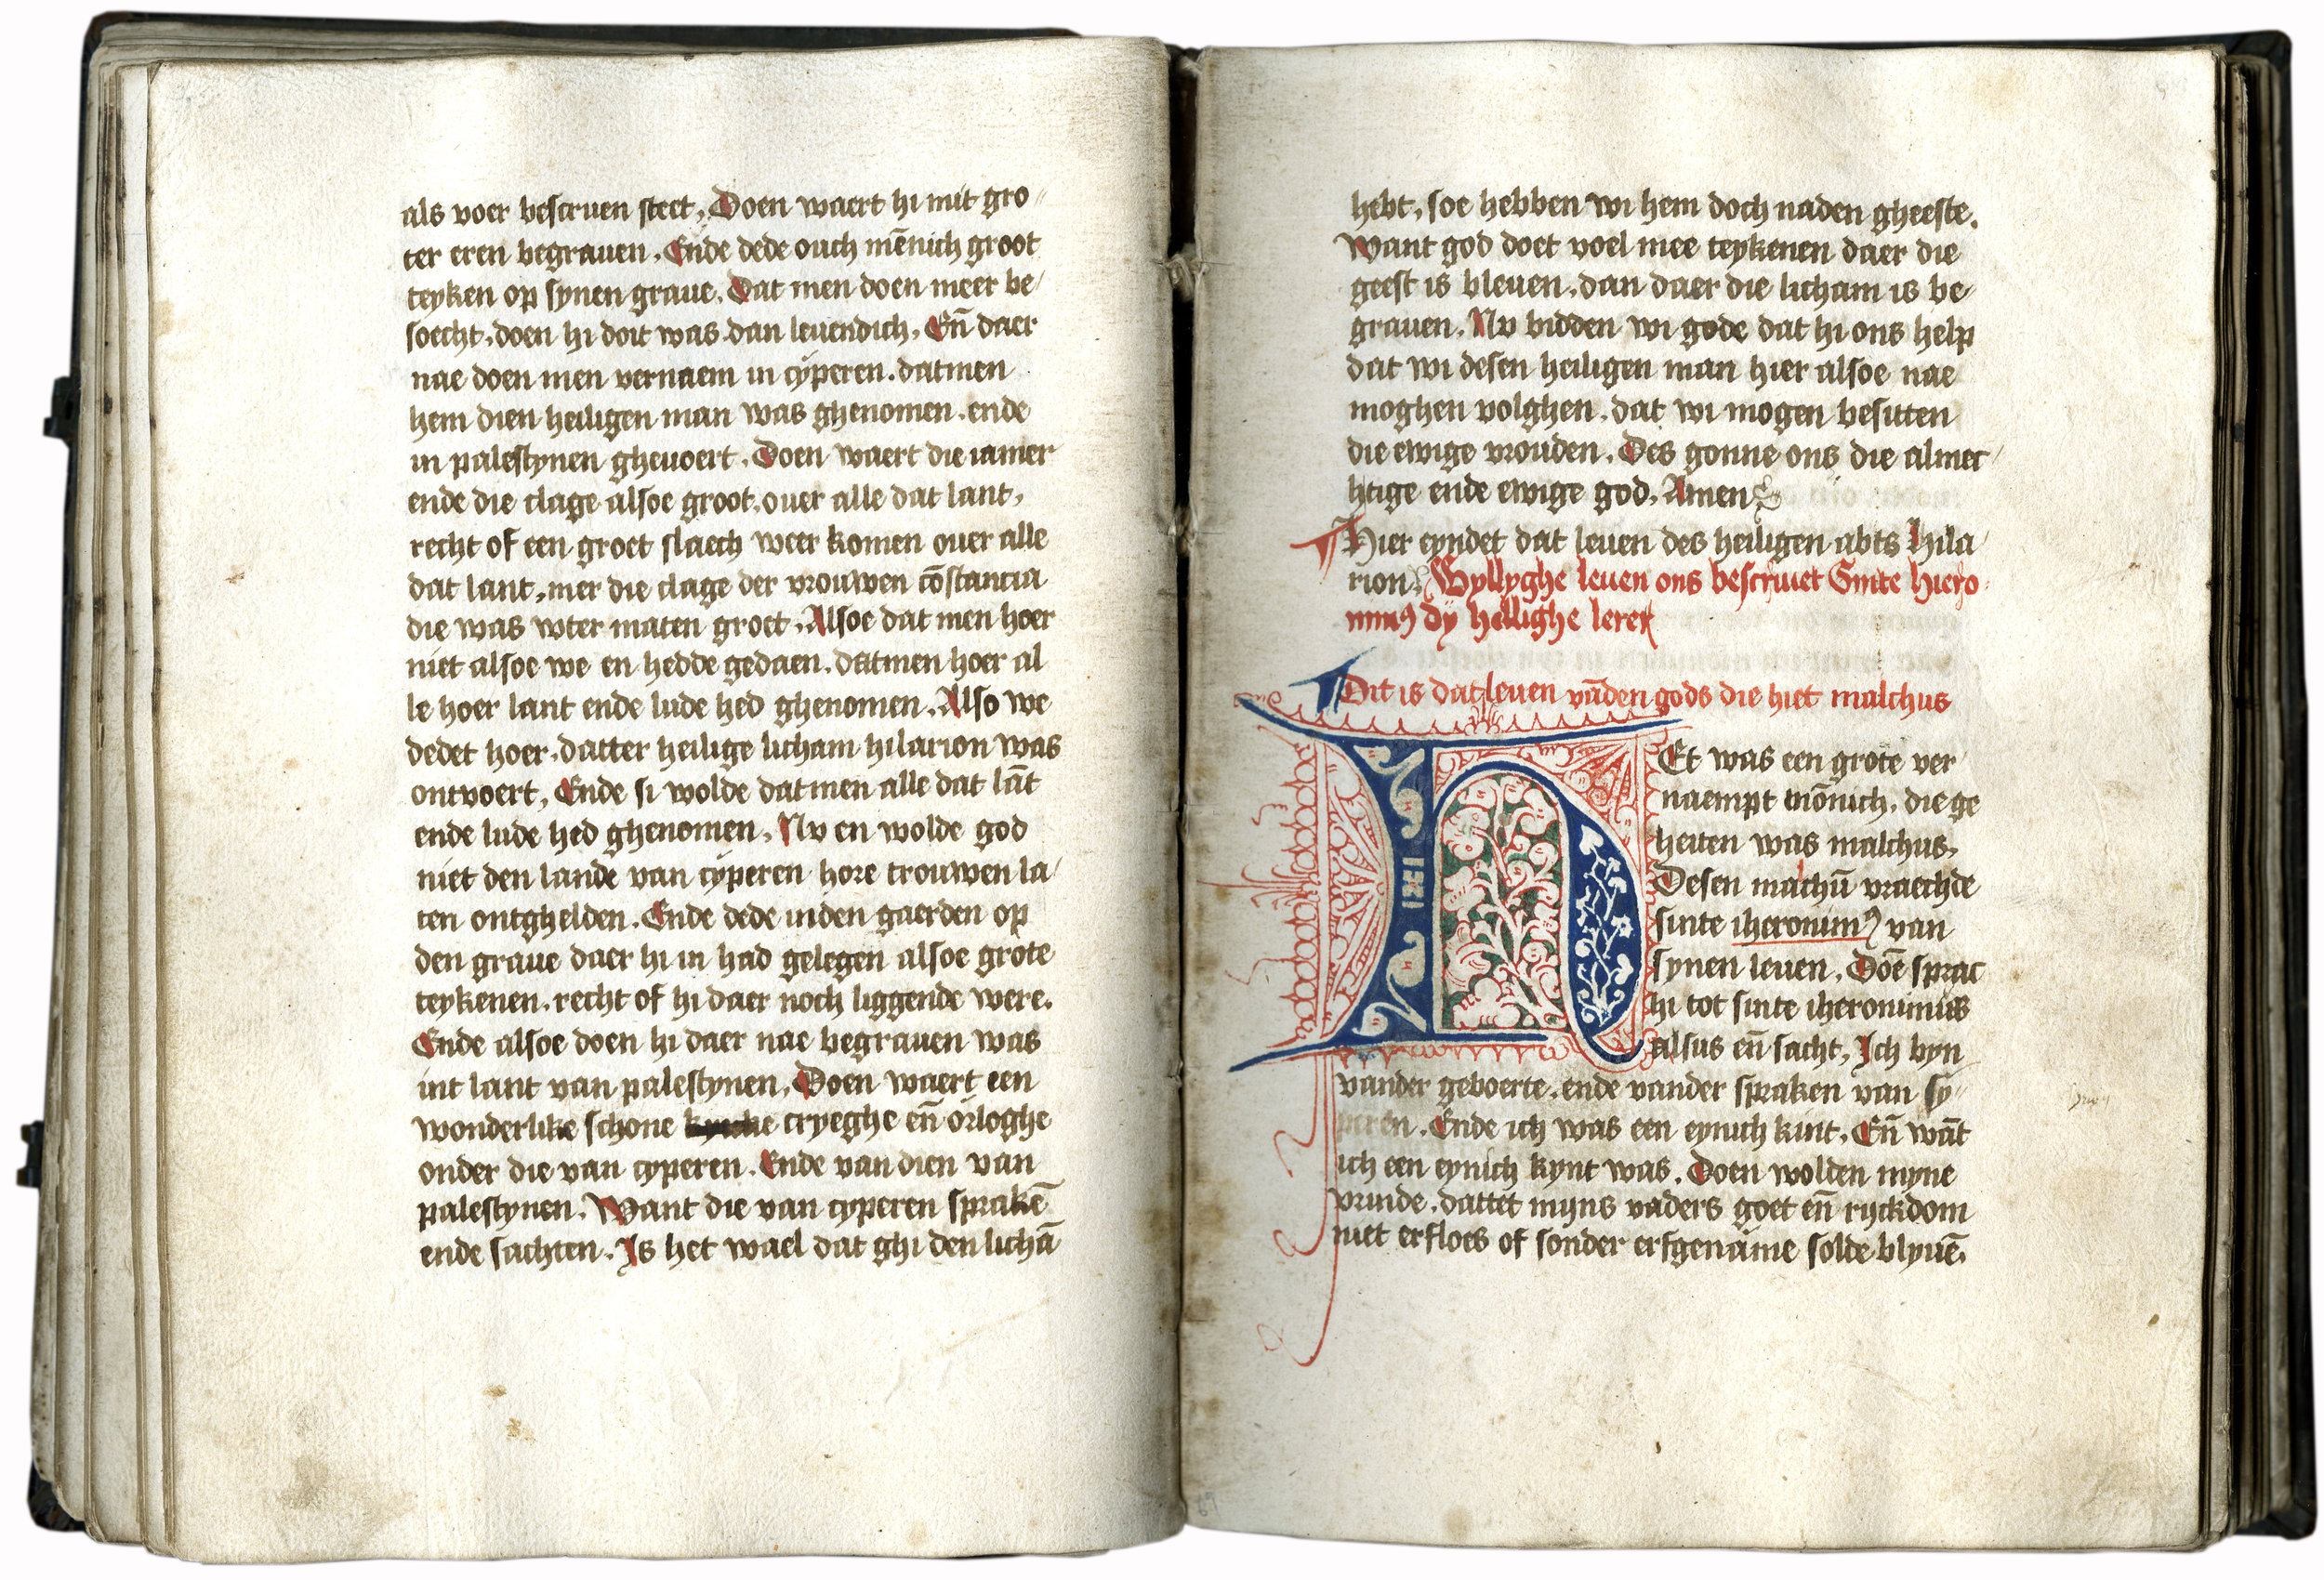 als voer bescruen steet, Doen waert hi mit gro
ter eren begrauen. Ende dede ouch mēnich groot
teyken op synen graue. Dat men doen meer be
soecht, doen hi doit was. dan leuendich. En̄ daer
nae doen men vernaem in cyperen. datmen
hem dien heiligen man was ghenomen. ende
in palestynen gheuoert. Doen waert die iamer
ende die clage alsoe groot. ouer alle dat lant,
recht of een groet slaech weer komen ouer alle
dat lant, mer die clage der vrouwen cōstancia
die was wter maten groet. Alsoe dat men hoer
niet alsoe we en hedde gedaen. datmen hoer al
le hoer lant ende lude hed ghenomen. Also we
dedet hoer. datter heilige licham hilarion was
ontvoert, Ende si wolde datmen alle dat lāt
ende lude hed ghenomen. Nv en wolde god
niet den lande van cyperen hore trouwen la
ten ontghelden. Ende dede inden gaerden op
den graue daer hi in had gelegen alsoe grote
teykenen. recht of hi daer noch liggende were.
Ende alsoe doen hi daer nae begrauen was
int lant van palestynen. Doen waert een
wonderlike schone cryeghe en̄ orloghe
onder die van cyperen. Ende van dien van
palestynen. Want die van cyperen sprakē
ende sachten. Is het wael dat ghi den lichā
hebt, soe hebben wi hem doch naden gheeste.
Want god doet voel mee teykenen daer die
geest is bleuen. dan daer die licham is be
grauen. Nv bidden wi gode dat hi ons help
dat wi desen heiligen man hier alsoe nae
moghen volghen. dat wi mogen besitten
die ewige vrouden. Des gonne ons die almec
htige ende ewige god. Amen
Hier eyndet dat leuen des heiligen abts hila
rion. Wyllyghe leuen ons bescriuet Sinte hiero
nimꝰ dy hellighe lerer
Dit is dat leuen vāden gods die hiet malchus
HEt was een grote ver
naempt mōnich. die ge
heiten was malchus.
Desen malchū vraechde
sinte iheronimꝰ van
synen leuen. Doē sprac
hi tot sinte iheronimus
alsus en̄ sacht, Ich byn
vander geboerte. ende vander spraken van sy
peren. Ende ich was een eynich kint. En̄ wāt
ich een eynich kynt was. Doen wolden myne
vrunde. dattet myns vaders goet en̄ ryckdom
niet erfloes of sonder erfgename solde blyuē.